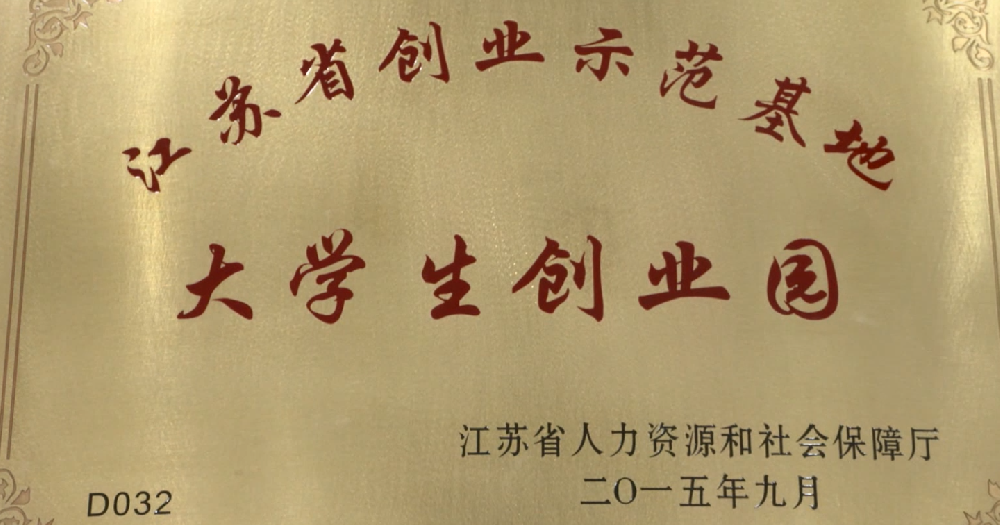 江苏省创业示范基地
大学生创业园
江苏省人力资源和社会保障厅
二〇一五年九月
D032